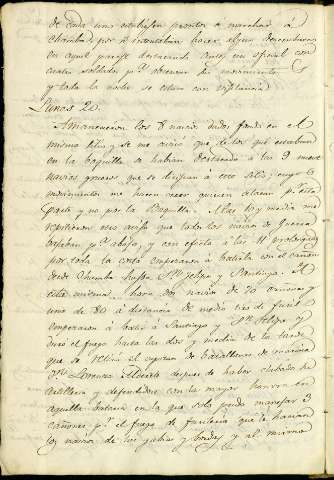 de cada una estubiesen prontos a marchar a
Chamba, por si intentaban hacer algun desembarco
en aquel parage destacando antes un oficial con
cuatro soldados pª observar los movimientos
y toda la noche se estuvo con vigilancia
Lunes 20.
Amanecieron los 8 navios dados fondo en el
mismo sitio y se me avisó que de los que estaban
en la Boquilla se habian destacado a las 9 nueve
navios gruesos que se dirijian a este sitio, cuyo
movimiento me hacen creer quieren atacar pr esta
parte y no por la Boquilla. A las 10 y media me
repitieron otro aviso que todos los navios de Guerra
bajaban pr abajo, y con efecto a las 11 prolongados
por toda la costa empezaron a batirla con el cañon
desde Chamba hasta Sn Felipe y Santiago. A
esta misma hora dos navios de 70 cañones y
uno de 80 á distancia de medio tiro de fusil
empezaron á batir a Santiago y Sn Felipe y
duró el fuego hasta las dos y media de la tarde
que se retiró el capitan de batallones de marina
Dn Lorenzo Alderete despues de haber clabado la
artilleria y defendidose con la mayor honra en
aquella bateria en la que solo pudo manejar 3
cañones pr el fuego de fusileria que le hacian
los navios de las gabias y bordes y al mismo